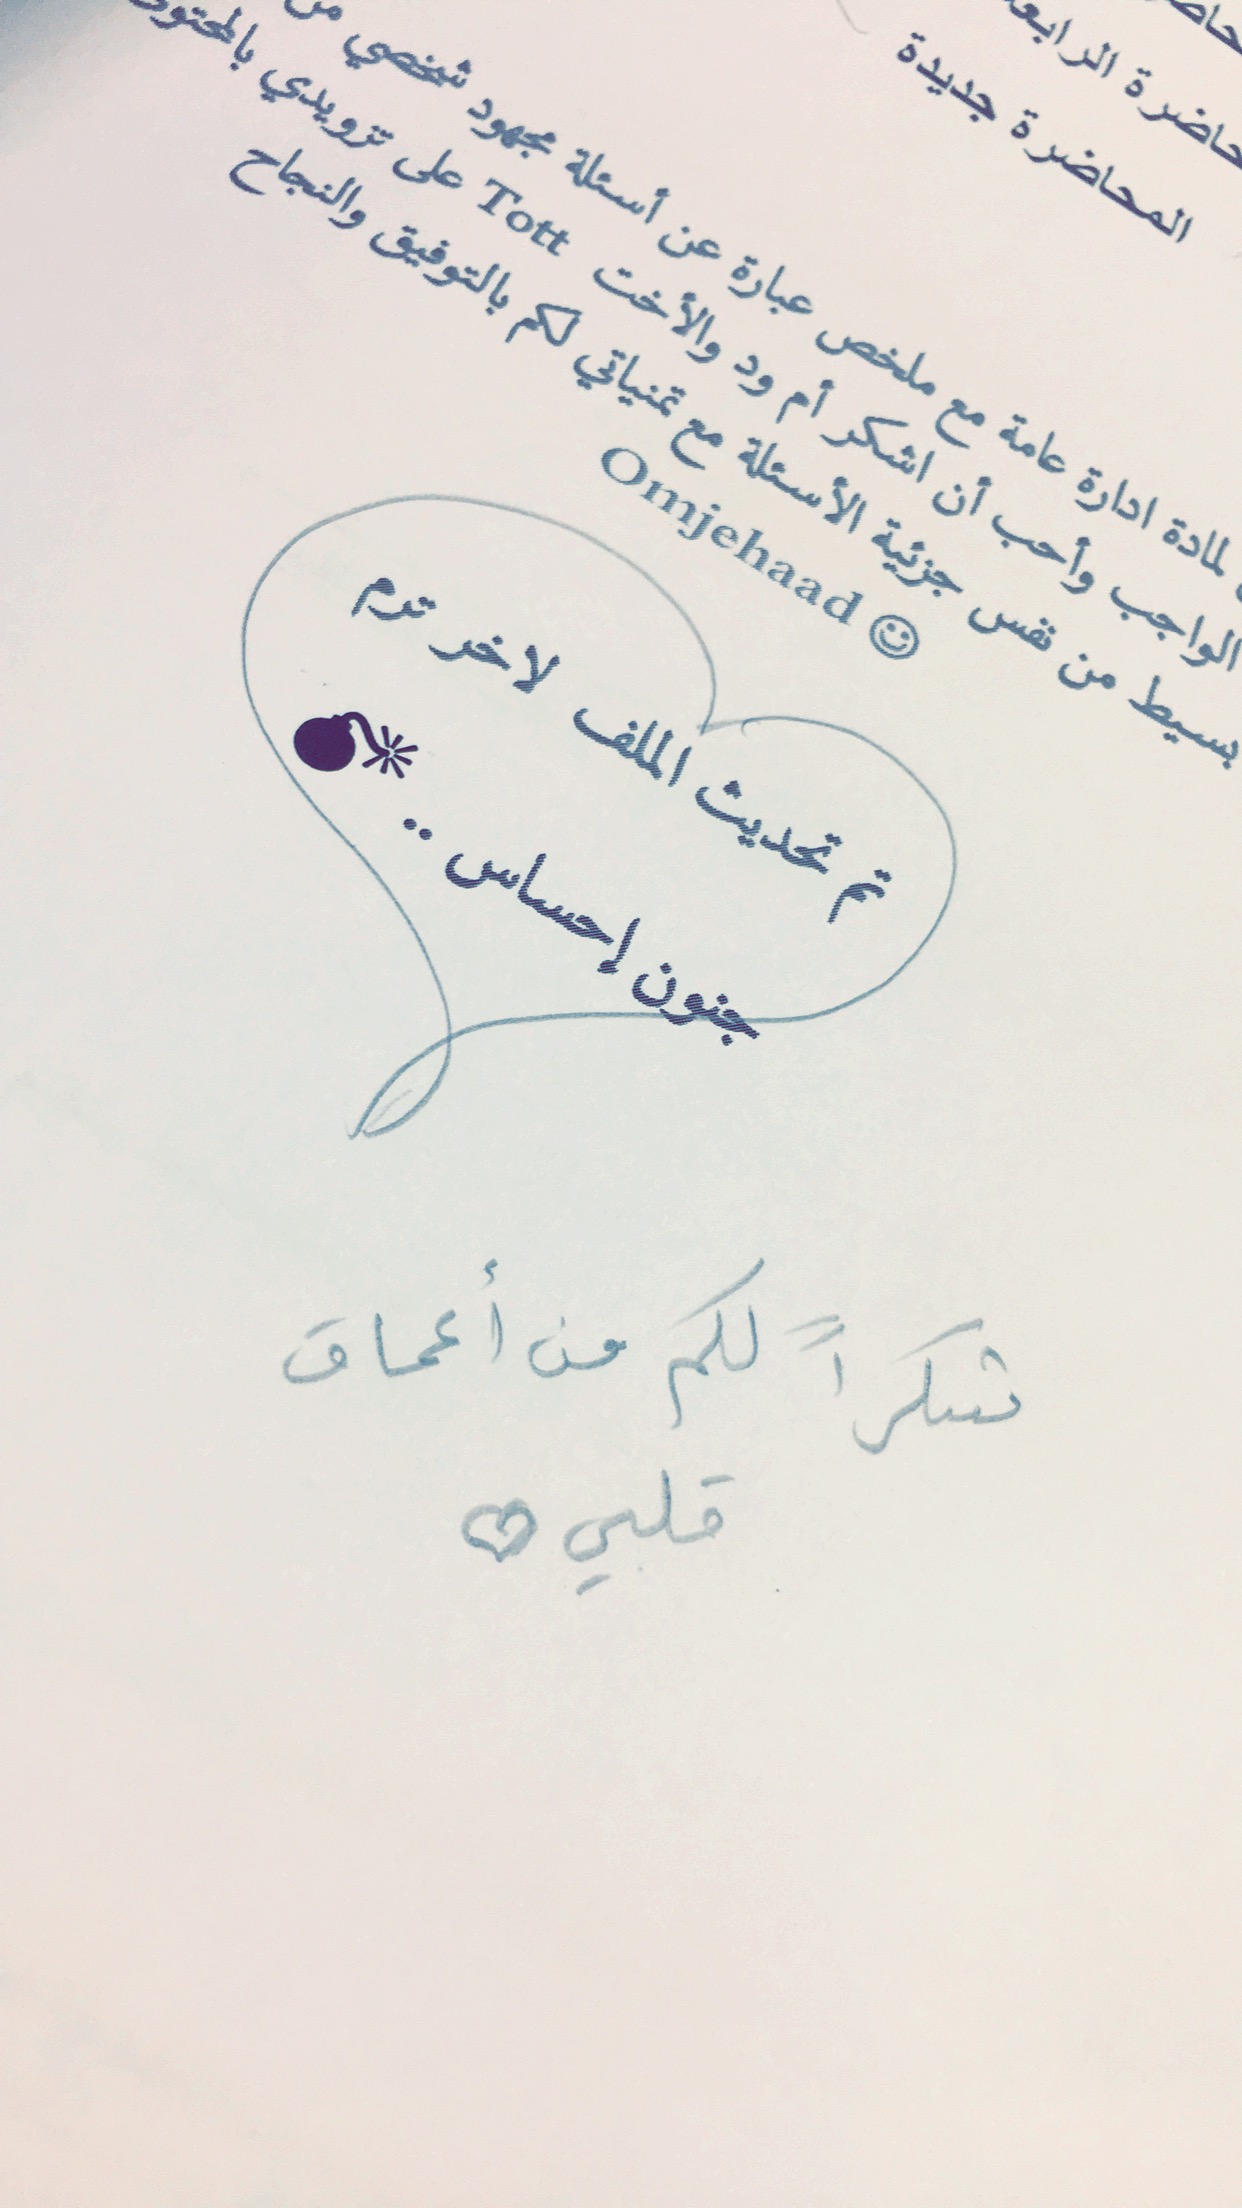 المحاضرة جديدة
لمادة ادارة عامة مع ملخص عبارة عن أسئلة مجهود شخصي من
الواجب وأحب أن اشكر أم ود والأخت Tott على تزويدي
بسيط من نفس جزئية الأسئلة مع تمنياتي لكم بالتوفيق والنجاح
Omjehaad ☺
تم تحديث الملف لاخر ترم
جنون إحساس .. 💣
شكراً لكم من أعماق
قلبي ♡